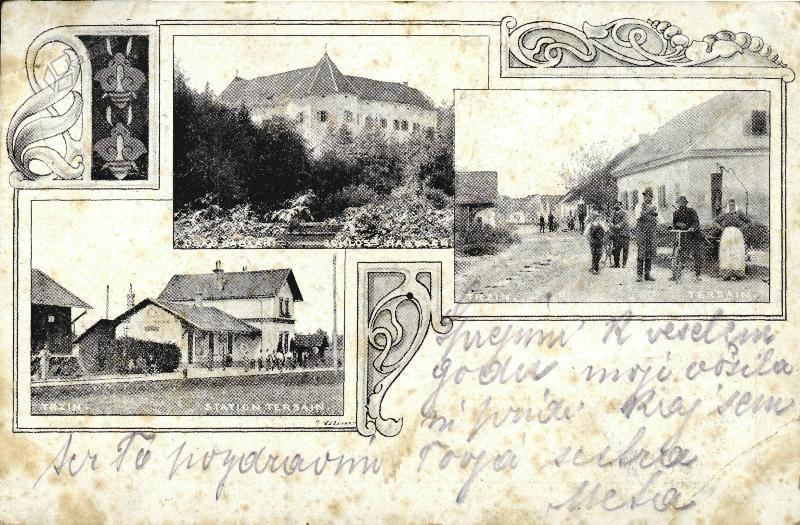 GRAD HABBAH. SCHLOSS HABBACH.
TRZIN. TERSAIN.
TRZIN. STATION TERSAIN.
Sprejmi K veselem
godu moji vošila
ni pridi Kraj sem
ter Te pozdravim Tvoja sestra
Meta